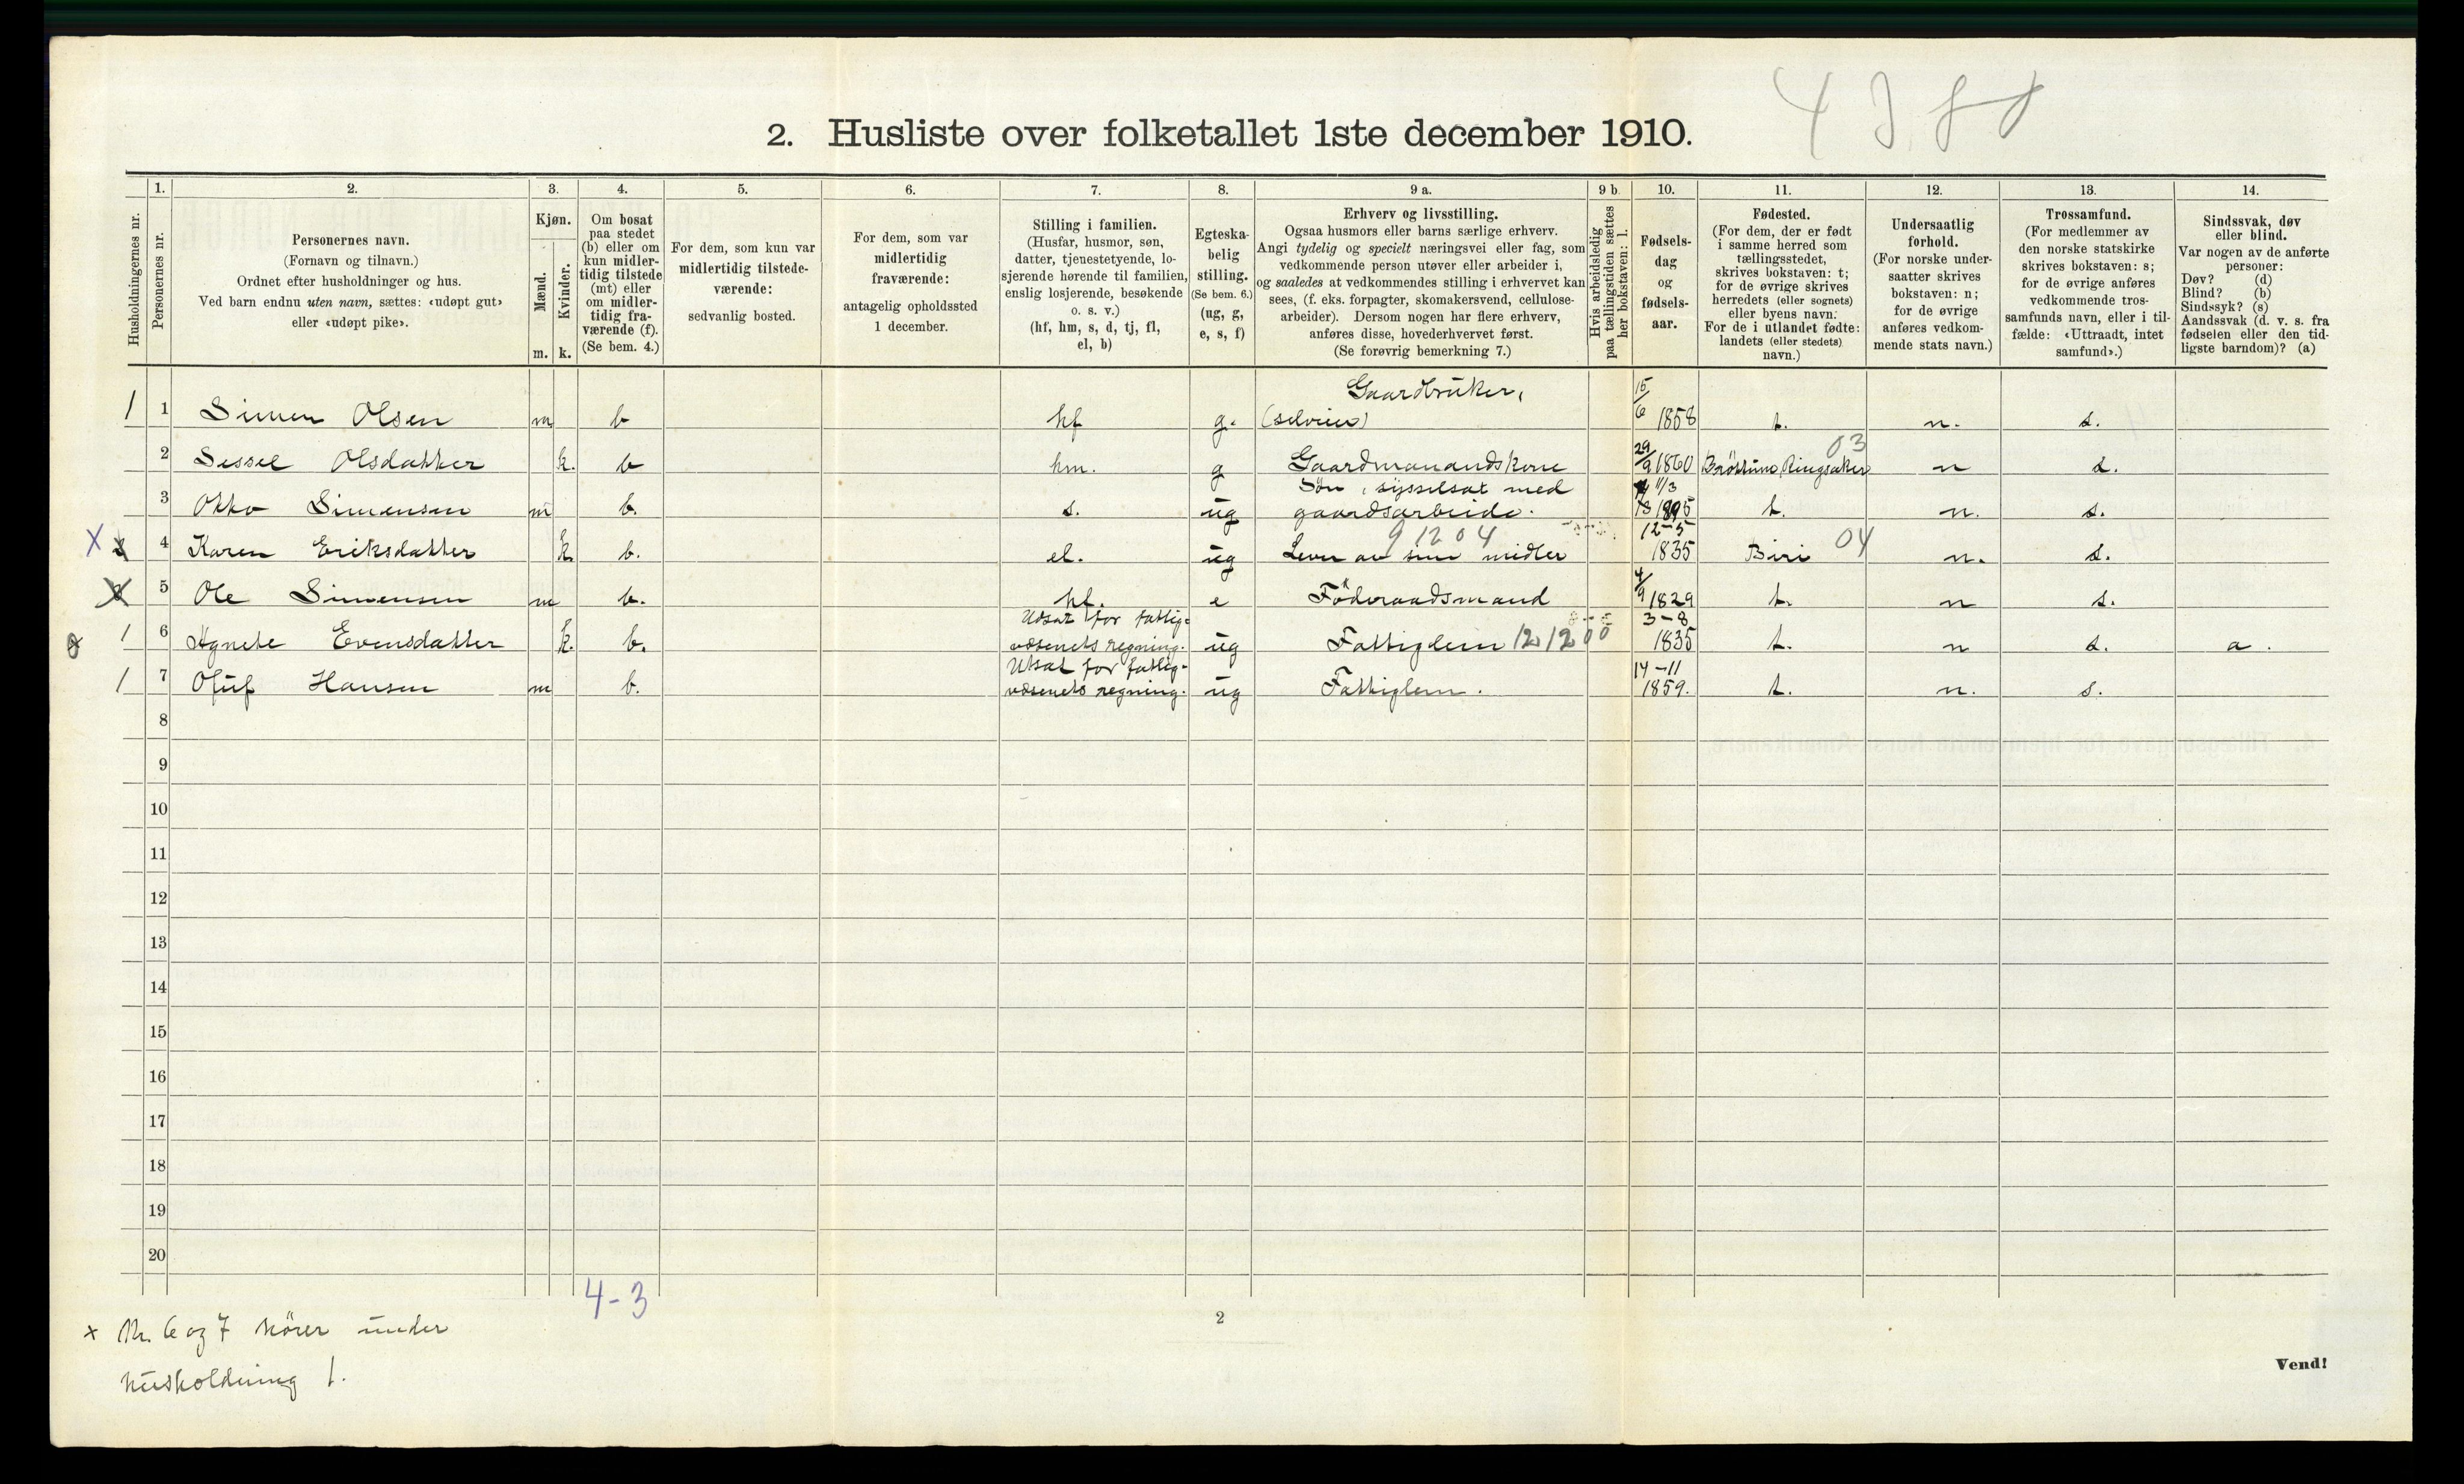 2. Husliste over folketallet 1ste december 1910.
1. 2. 3. 4. 5. 6. 7. 8. 9 a. 9 b. 10. 11. 12. 13. 14.
Husholdningernes nr.
Personernes nr.
Personernes navn.
(Fornavn og tilnavn.)
Ordnet efter husholdninger og hus.
Ved barn endnu uten navn, sættes: «udøpt gut»
eller «udøpt pike».
Kjøn.
Mænd.
Kvinder.
m. k.
Om bosat
paa stedet
(b) eller om
kun midler-
tidig tilstede
(mt) eller
om midler-
tidig fra-
værende (f).
(Se bem. 4.)
For dem, som kun var
midlertidig tilstede-
værende:
sedvanlig bosted.
For dem, som var
midlertidig
fraværende:
antagelig opholdssted
1 december.
Stilling i familien.
(Husfar, husmor, søn,
datter, tjenestetyende, lo-
sjerende hørende til familien,
enslig losjerende, besøkende
o. s. v.)
(hf, hm, s, d, tj, fl,
el, b)
Egteska-
belig
stilling.
(Se bem. 6.)
(ug, g,
e, s, f)
Erhverv og livsstilling.
Ogsaa husmors eller barns særlige erhverv.
Angi tydelig og specielt næringsvei eller fag, som
vedkommende person utøver eller arbeider i,
og saaledes at vedkommendes stilling i erhvervet kan
sees, (f. eks. forpagter, skomakersvend, cellulose-
arbeider). Dersom nogen har flere erhverv,
anføres disse, hovederhvervet først.
(Se forøvrig bemerkning 7.)
Hvis arbeidsledig
paa tællingstiden sættes
her bokstaven: l.
Fødsels-
dag
og
fødsels-
aar.
Fødested.
(For dem, der er født
i samme herred som
tællingsstedet,
skrives bokstaven: t;
for de øvrige skrives
herredets (eller sognets)
eller byens navn.
For de i utlandet fødte:
landets (eller stedets)
navn.)
Undersaatlig
forhold.
(For norske under-
saatter skrives
bokstaven: n;
for de øvrige
anføres vedkom-
mende stats navn.)
Trossamfund.
(For medlemmer av
den norske statskirke
skrives bokstaven: s;
for de øvrige anføres
vedkommende tros-
samfunds navn, eller i til-
fælde: «Uttraadt, intet
samfund».)
Sindssvak, døv
eller blind.
Var nogen av de anførte
personer:
Døv? (d)
Blind? (b)
Sindssyk? (s)
Aandssvak (d. v. s. fra
fødselen eller den tid-
ligste barndom)? (a)
1 1 Simen Olsen m b hf g. Gaardbruker, (selveier) 15/6 1858 t. n. s.
2 Sessel Olsdatter k. b hm. g Gaardmanandskone 29/9 1860 Brøttum, Ringsaker 03 n s.
3 Otto Simensen m b. s. ug Søn, sysselsat med gaardsarbeide. 11/3 1895 t. n. s.
X 4 Karen Eriksdatter k b. el. ug Lever av sine midler 9 12 04 12-5 1835 Biri 04 n. s.
5 Ole Simensen m b. hf. e Föderaadsmand 4/9 1829 t. n s.
1 6 Agnete Evensdatter k. b. Utsat for fattig-
væsenets regning. ug Fattiglem 12 12 00 3-8 1835 t. n s. a.
1 7 Oluf Hansen m b. Utsat for fattig-
væsenets regning. ug Fattiglem. 14-11 1859. t. n. s.
8
9
10
11
12
13
14
15
16
17
18
19
20
4-3
x Nr. 6 og 7 hører under
husholdning 1.
2
Vend!